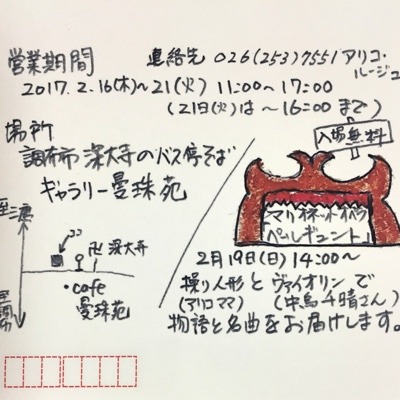 営業期間
連絡先 026(253)7551 アリコ・ルージュ
2017.2.16(木)~21(火) 11:00~17:00
(21日(火)は~16:00まで)
場所
調布市 深大寺のバス停そば
ギャラリー曼珠苑
入場無料
マリオネットオペラ
ペールギュント
至三鷹
ココ
卍深大寺
・cafe
曼珠苑
2月19日(日)14:00~
操り人形とヴァイオリンで
(アリコママ) (中島千晴さん)
物語と名曲をお届けします。